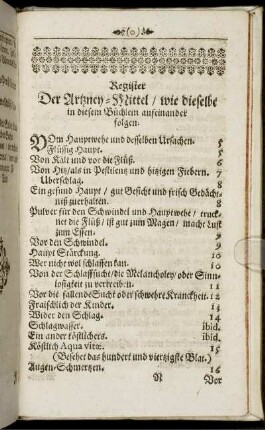 (o)
Register
Der Artzney-Mittel / wie dieselbe
in diesem Büchlein auseinander
folgen.
VOm Hauptwehe und desselben Ursachen. 5
Flüssig Haupt. 5
Von Kält und vor die Flüß. 6
Von Hitz/als in Pestilentz und hitzigen Fiebern. 7
Uberschlag. 7
Ein gesund Haupt / gut Gesicht und frisch Gedächt-
niß zuerhalten. 8
Pulver für den Schwindel und Hauptwehe / truck-
net die Flüß / ist gut zum Magen / macht Lust
zum Essen. 8
Vor den Schwindel. 9
Haupt Stärckung. 10
Wer nicht wol schlaffen kan. 10
Von der Schlaffsucht/ die Melancholey oder Sinn-
losigkeit zu vertreiben. 11
Vor die fallende Sucht oder schwehre Kranckheit. 12
Fraischlich der Kinder. 13
Wider den Schlag. 14
Schlagwasser. ibid.
Ein ander köstlichers. ibid.
Köstlich Aqua vitæ. 15
(Besehet das hundert und viertzigste Blat.)
Augen-Schmertzen. 16
R Vor